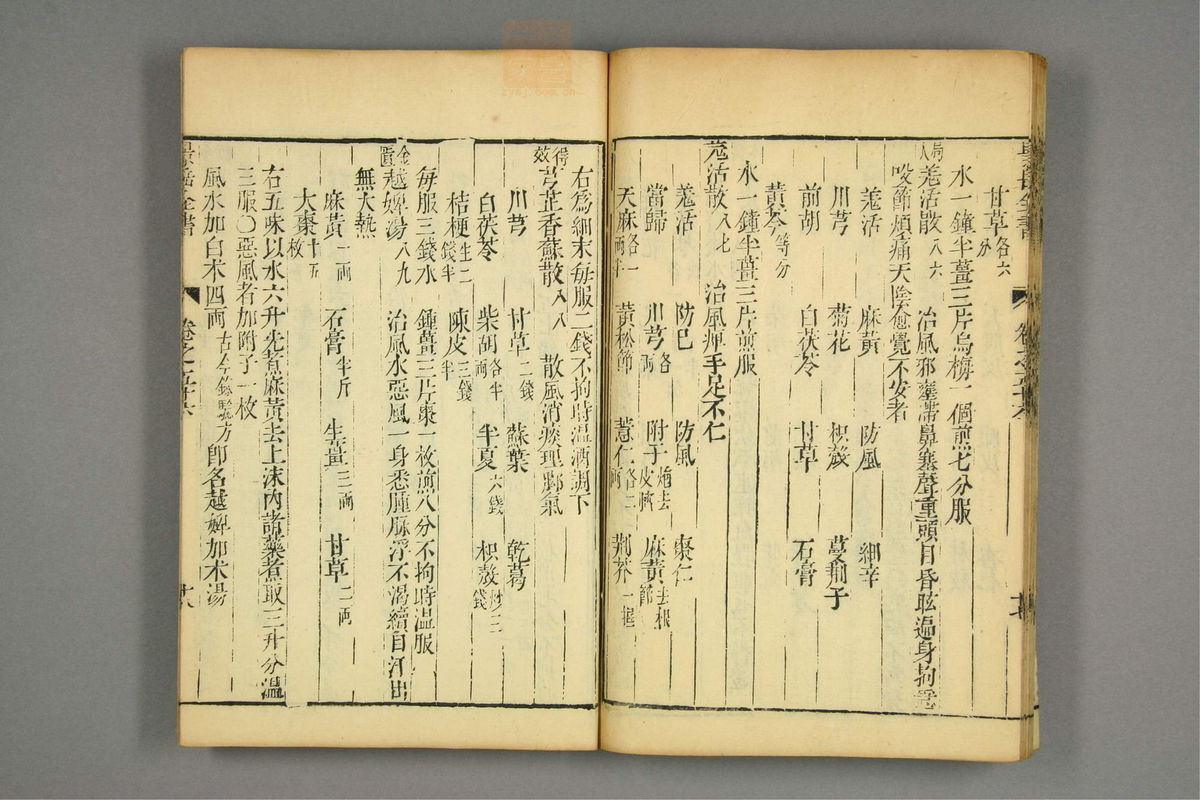 景岳全書 卷之五十六 十七
甘草各六分
水一鐘半薑三片烏梅一個煎七分服
局人羗活散八六 治風邪壅滯鼻塞聲重頭目昏眩遍身拘急
咬節煩痛天陰愈覺不安者
羗活 麻黃 防風 細辛
川芎 菊花 枳殼 蔓荆子
前胡 白茯苓 甘草 石膏
黃芩等分
水一鐘半薑三片煎服
羗活散八七 治風痺手足不仁
羗活 防巳 防風 棗仁
當歸 川芎各兩 附子炮去皮臍 麻黃去根節
天麻各一兩半 黃松節 薏仁各二兩 荆芥一握
右爲細末每服二錢不拘時温酒調下
得效芎芷香蘇散八八 散風消痰理鄿氣
川芎 甘草二錢 蘇葉 乾葛
白茯苓 柴胡各半兩 半夏六錢 枳殼炒三錢
桔梗生二錢半 陳皮三錢半
每服三錢水一鍾薑三片棗一枚煎八分不拘時温服
金匱越婢湯八九 治風水惡風一身悉腫脉浮不渴續自汗出
無大熱
麻黃二兩 石膏半斤 生薑三兩 甘草二兩
大棗十五枚
右五味以水六升先煮麻黃去上沫內諸藥煮取三升分温
三服○惡風者加附子一枚
風水加白术四兩 古今錄驗方即名越婢加术湯
景岳全書 卷之五十六 十八
zysj.com.cn